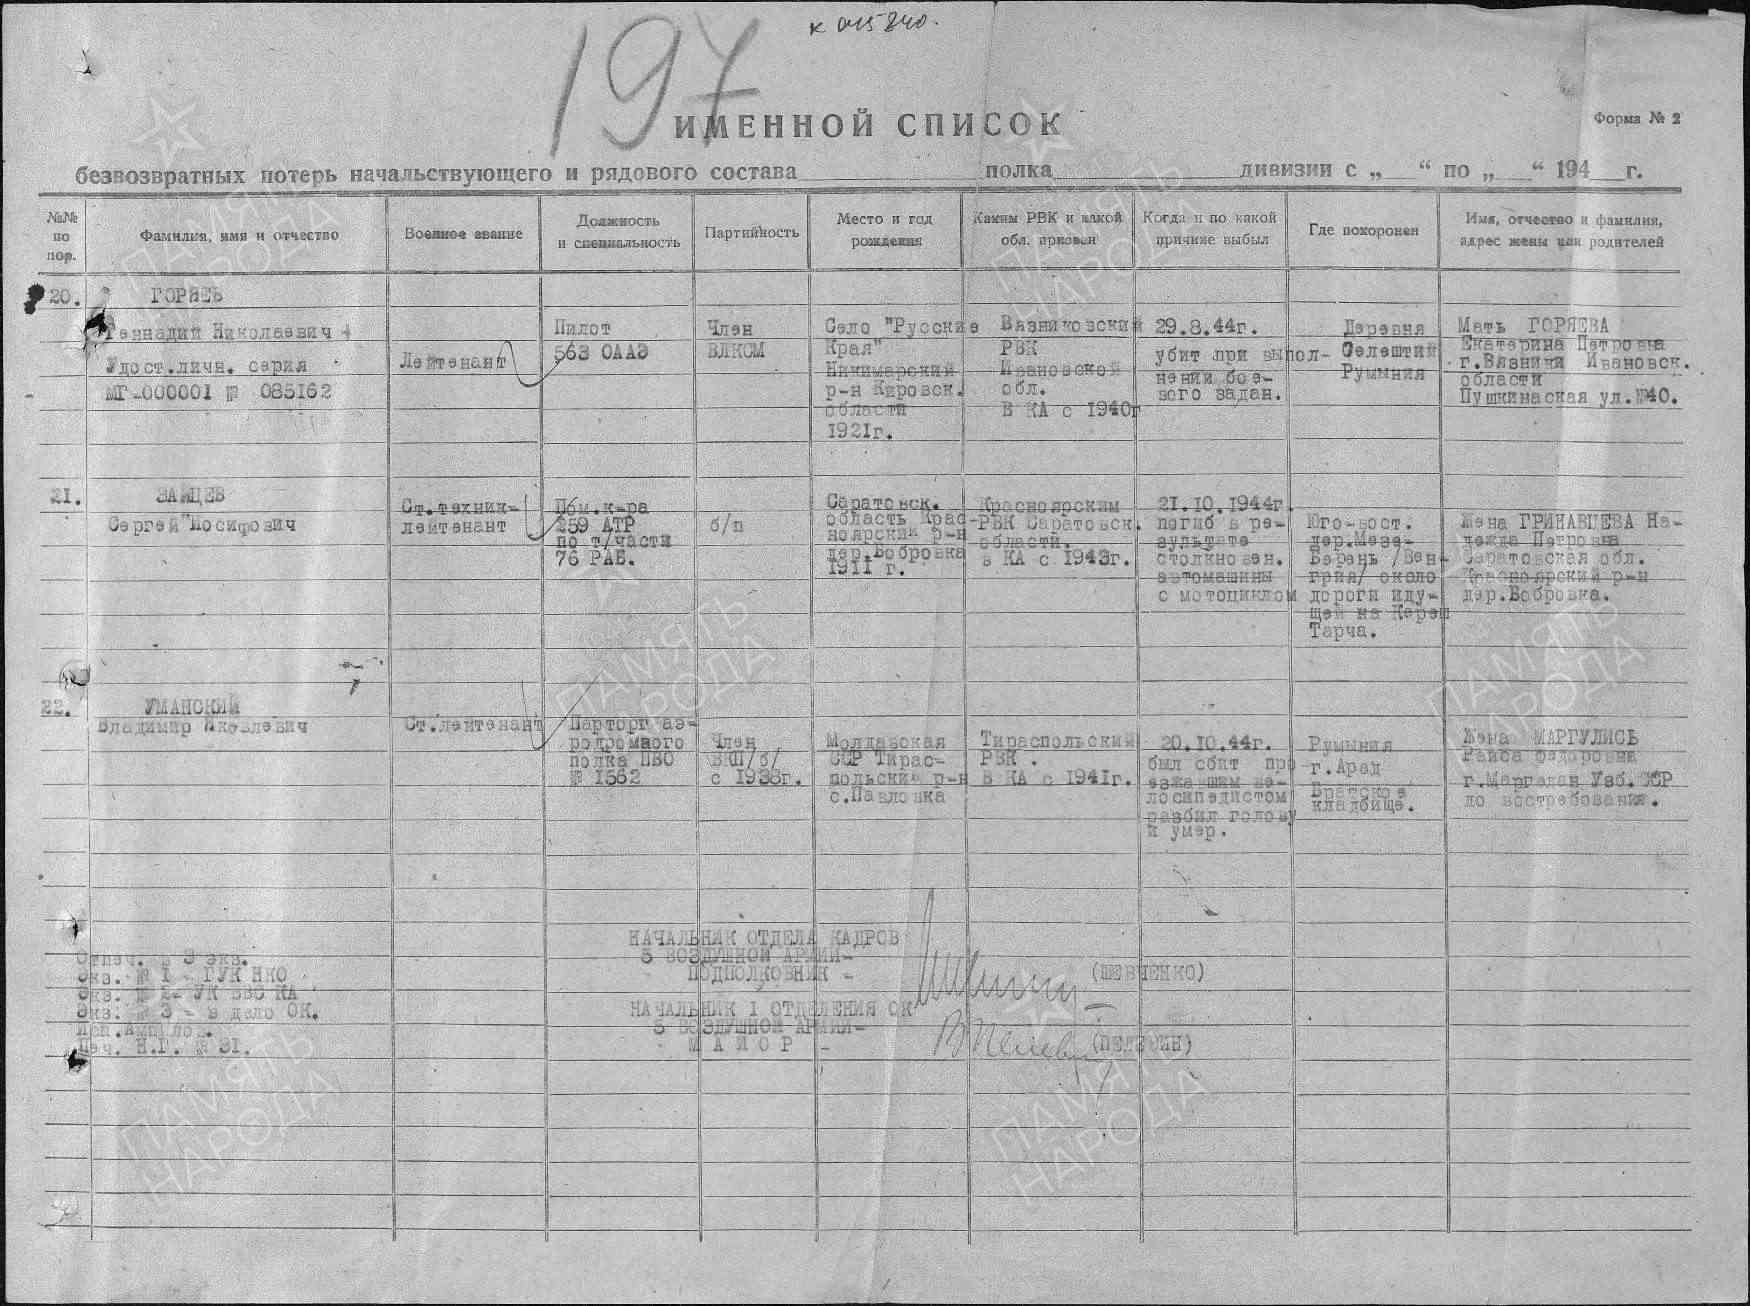 197
к 015840.
ИМЕННОЙ СПИСОК
Форма № 2
безвозвратных потерь начальствующего и рядового состава полка дивизии с „ “ по „ “ 194 г.
№№ по пор.
Фамилия, имя и отчество
Военное звание
Должность и специальность
Партийность
Место и год рождения
Каким РВК и какой обл. призван
Когда и по какой причине выбыл
Где похоронен
Имя, отчество и фамилия, адрес жены или родителей
20.
ГОРЯЕВ
Геннадий Николаевич
Удост.личн. серия
МГ-000001 № 085162
Лейтенант
Пилот
563 ОААЭ
Член
ВЛКСМ
Село "Русские
Края"
Кикимарский
р-н Кировск.
области
1921г.
Вязниковский
РВК
Ивановской
обл.
В КА с 1940г
29.8.44г.
убит при выпол-
нении бое-
вого задан.
Деревня
Селештий
Румыния
Мать ГОРЯЕВА
Екатерина Петровна
г.Вязники Ивановск.
области
Пушкинаская ул.№40.
21.
ЗАЙЦЕВ
Сергей Иосифович
Ст.техник-
лейтенант
Пом.к-ра
259 АТР
по т/части
76 РАБ.
б/п
Саратовск.
область Крас-
ноярский р-н
дер.Бобровка
1911 г.
Красноярским
РВК Саратовск.
области.
в КА с 1943г.
21.10.1944г.
погиб в ре-
зультате
столкновен.
автомашины
с мотоциклом
Юго-вост.
дер.Мезе-
Берень /Вен-
грия/ около
дороги иду-
щей на Кереш
Тарча.
Жена ГРИНАВЦЕВА На-
дежда Петровна
Саратовская обл.
Красноярский р-н
дер.Бобровка.
22.
УМАНСКИЙ
Владимир Яковлевич
Ст.лейтенант
Парторг аэ-
родромного
полка ПВО
№ 1562
Член
ВКП/б/
с 1938г.
Молдавская
ССР Тирас-
польский р-н
с.Павловка
Тираспольский
РВК .
В КА с 1941г.
20.10.44г.
был сбит про
езжавшим ве-
лосипедистом
разбил голову
и умер.
Румыния
г.Арад
Братское
кладбище.
Жена МАРГУЛИСЬ
Раиса Федоровна
г.Маргелан Узб.ССР
до востребования.
НАЧАЛЬНИК ОТДЕЛА КАДРОВ
5 ВОЗДУШНОЙ АРМИИ-
- ПОДПОЛКОВНИК -
(ШЕВЧЕНКО)
НАЧАЛЬНИК I ОТДЕЛЕНИЯ ОК
5 ВОЗДУШНОЙ АРМИИ-
- М А Й О Р -
Отпеч. в 3 экз.
Экз. № 1 - ГУК НКО
Экз. № 2- УК ВВС КА
Экз. № 3 - в дело ОК.
Печ. Н.Г. № 31.
ПАМЯТЬ
НАРОДА